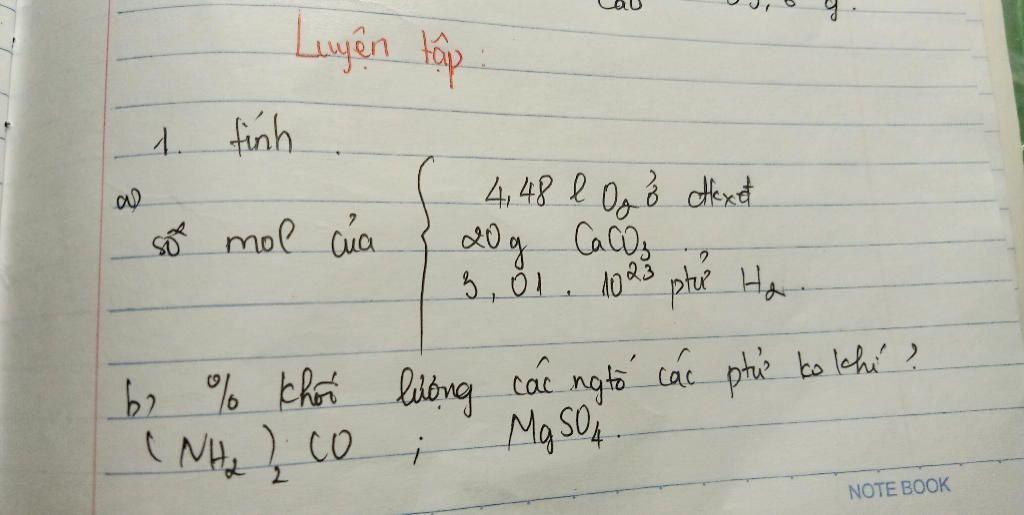 Luyện tập:
1. tính.
a)
số mol của
4,48 l O₂ ở đkxđ
20g CaCO₃.
3,01. 10²³ ptử H₂.
b) % khối lượng các ngtố các ptử ko khí?
(NH₂)₂CO ; MgSO₄.
NOTE BOOK